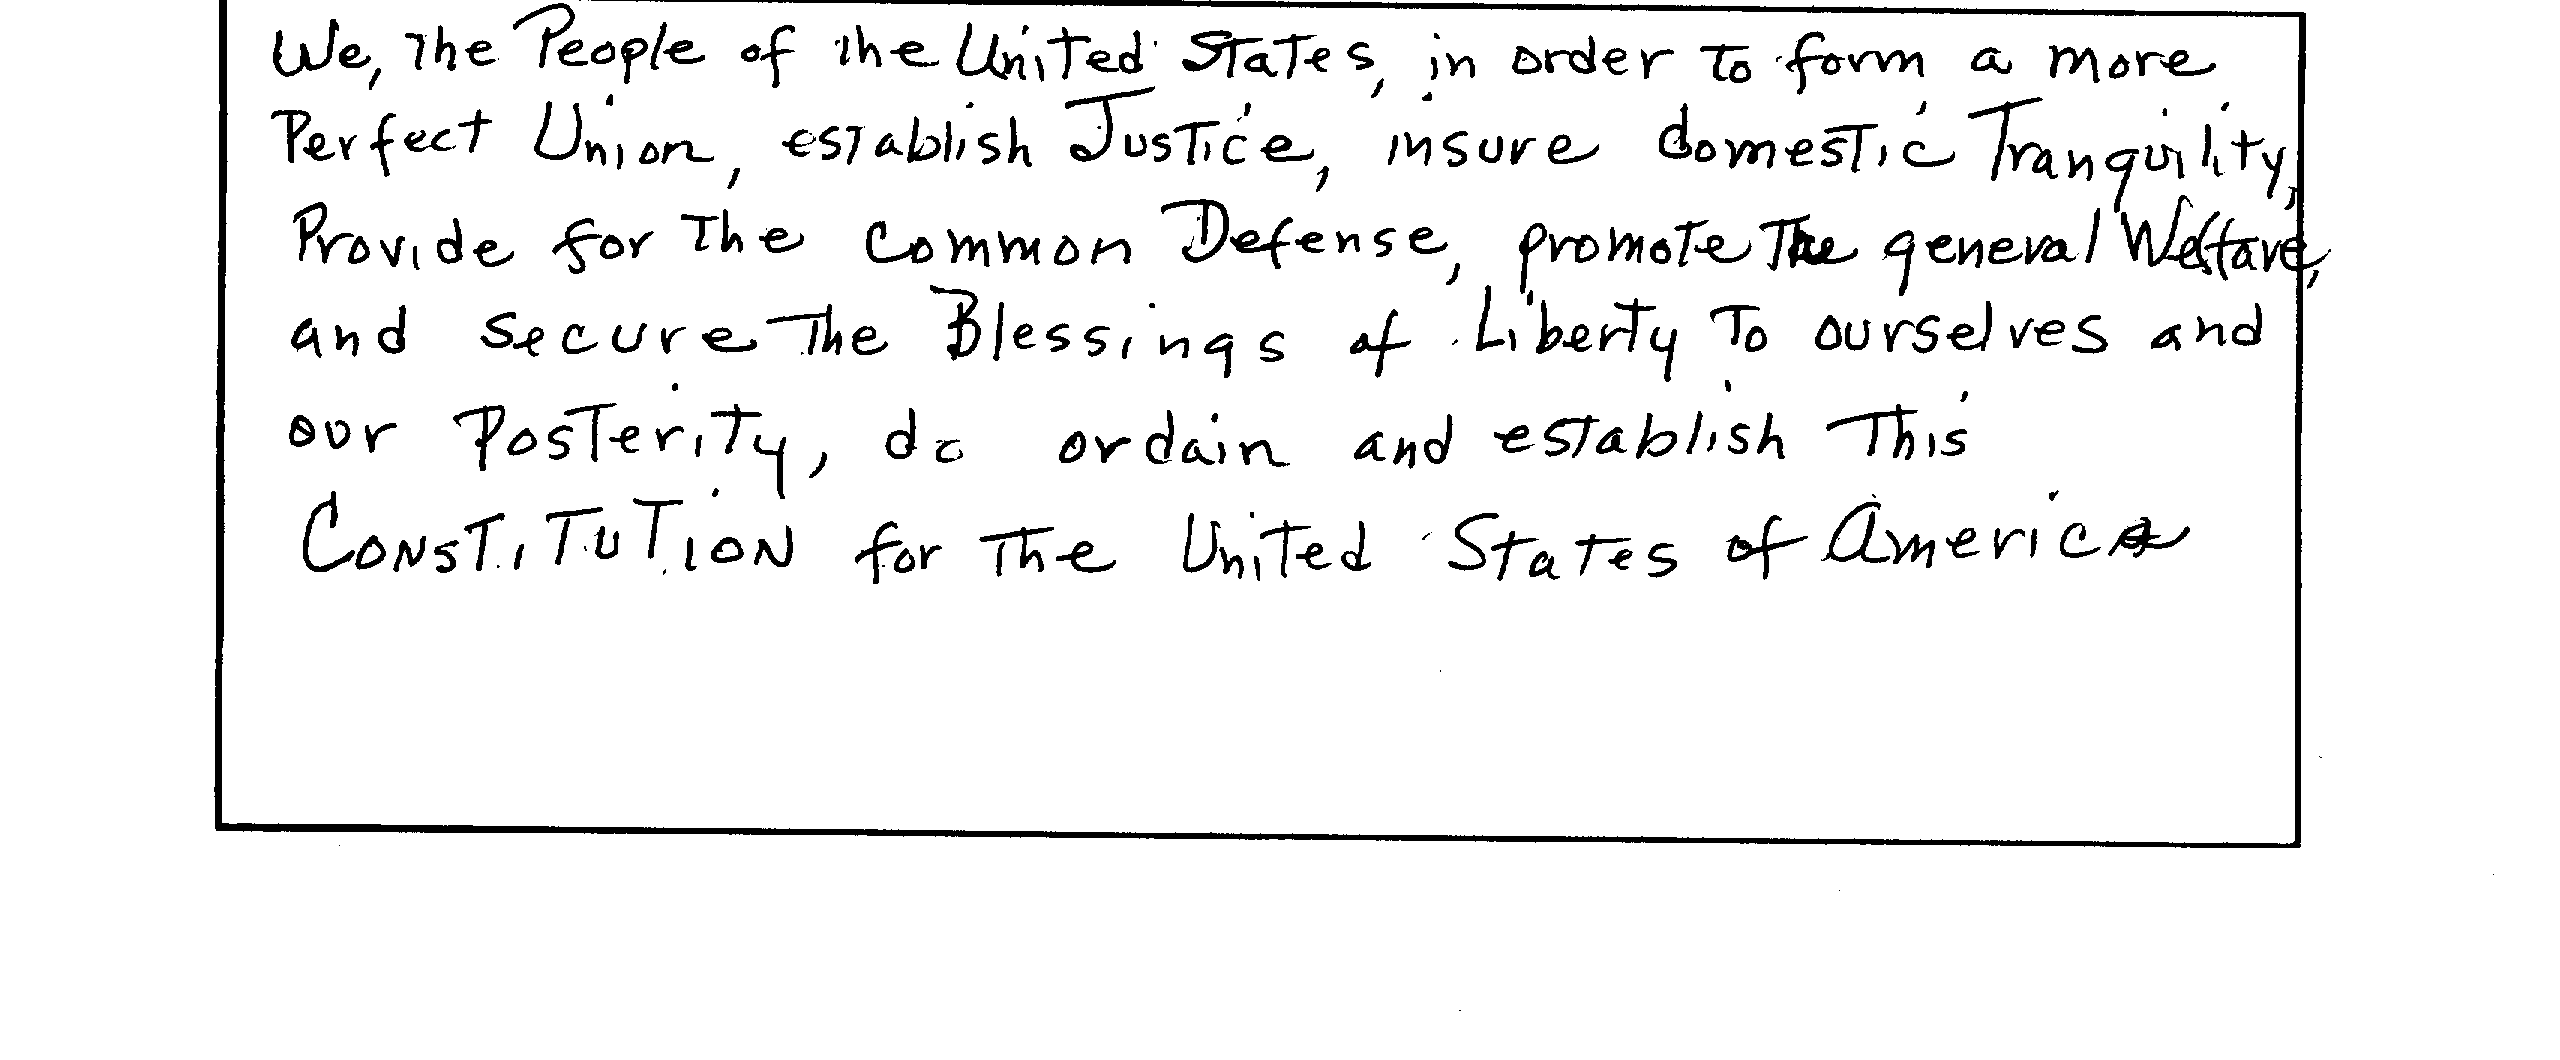 We, the People of the United States, in order to form a more
Perfect Union, establish Justice, insure domestic Tranquility,
Provide for the common Defense, promote the general Welfare,
and secure the Blessings of Liberty to ourselves and
our Posterity, do ordain and establish this
CONSTITUTION for the United States of America